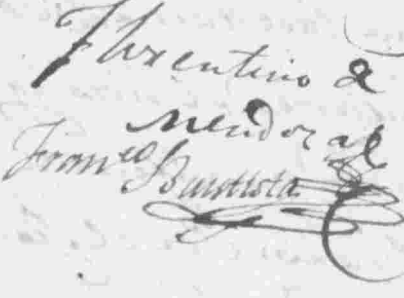 Florentino de
Mendoza
Fran.co Bautista